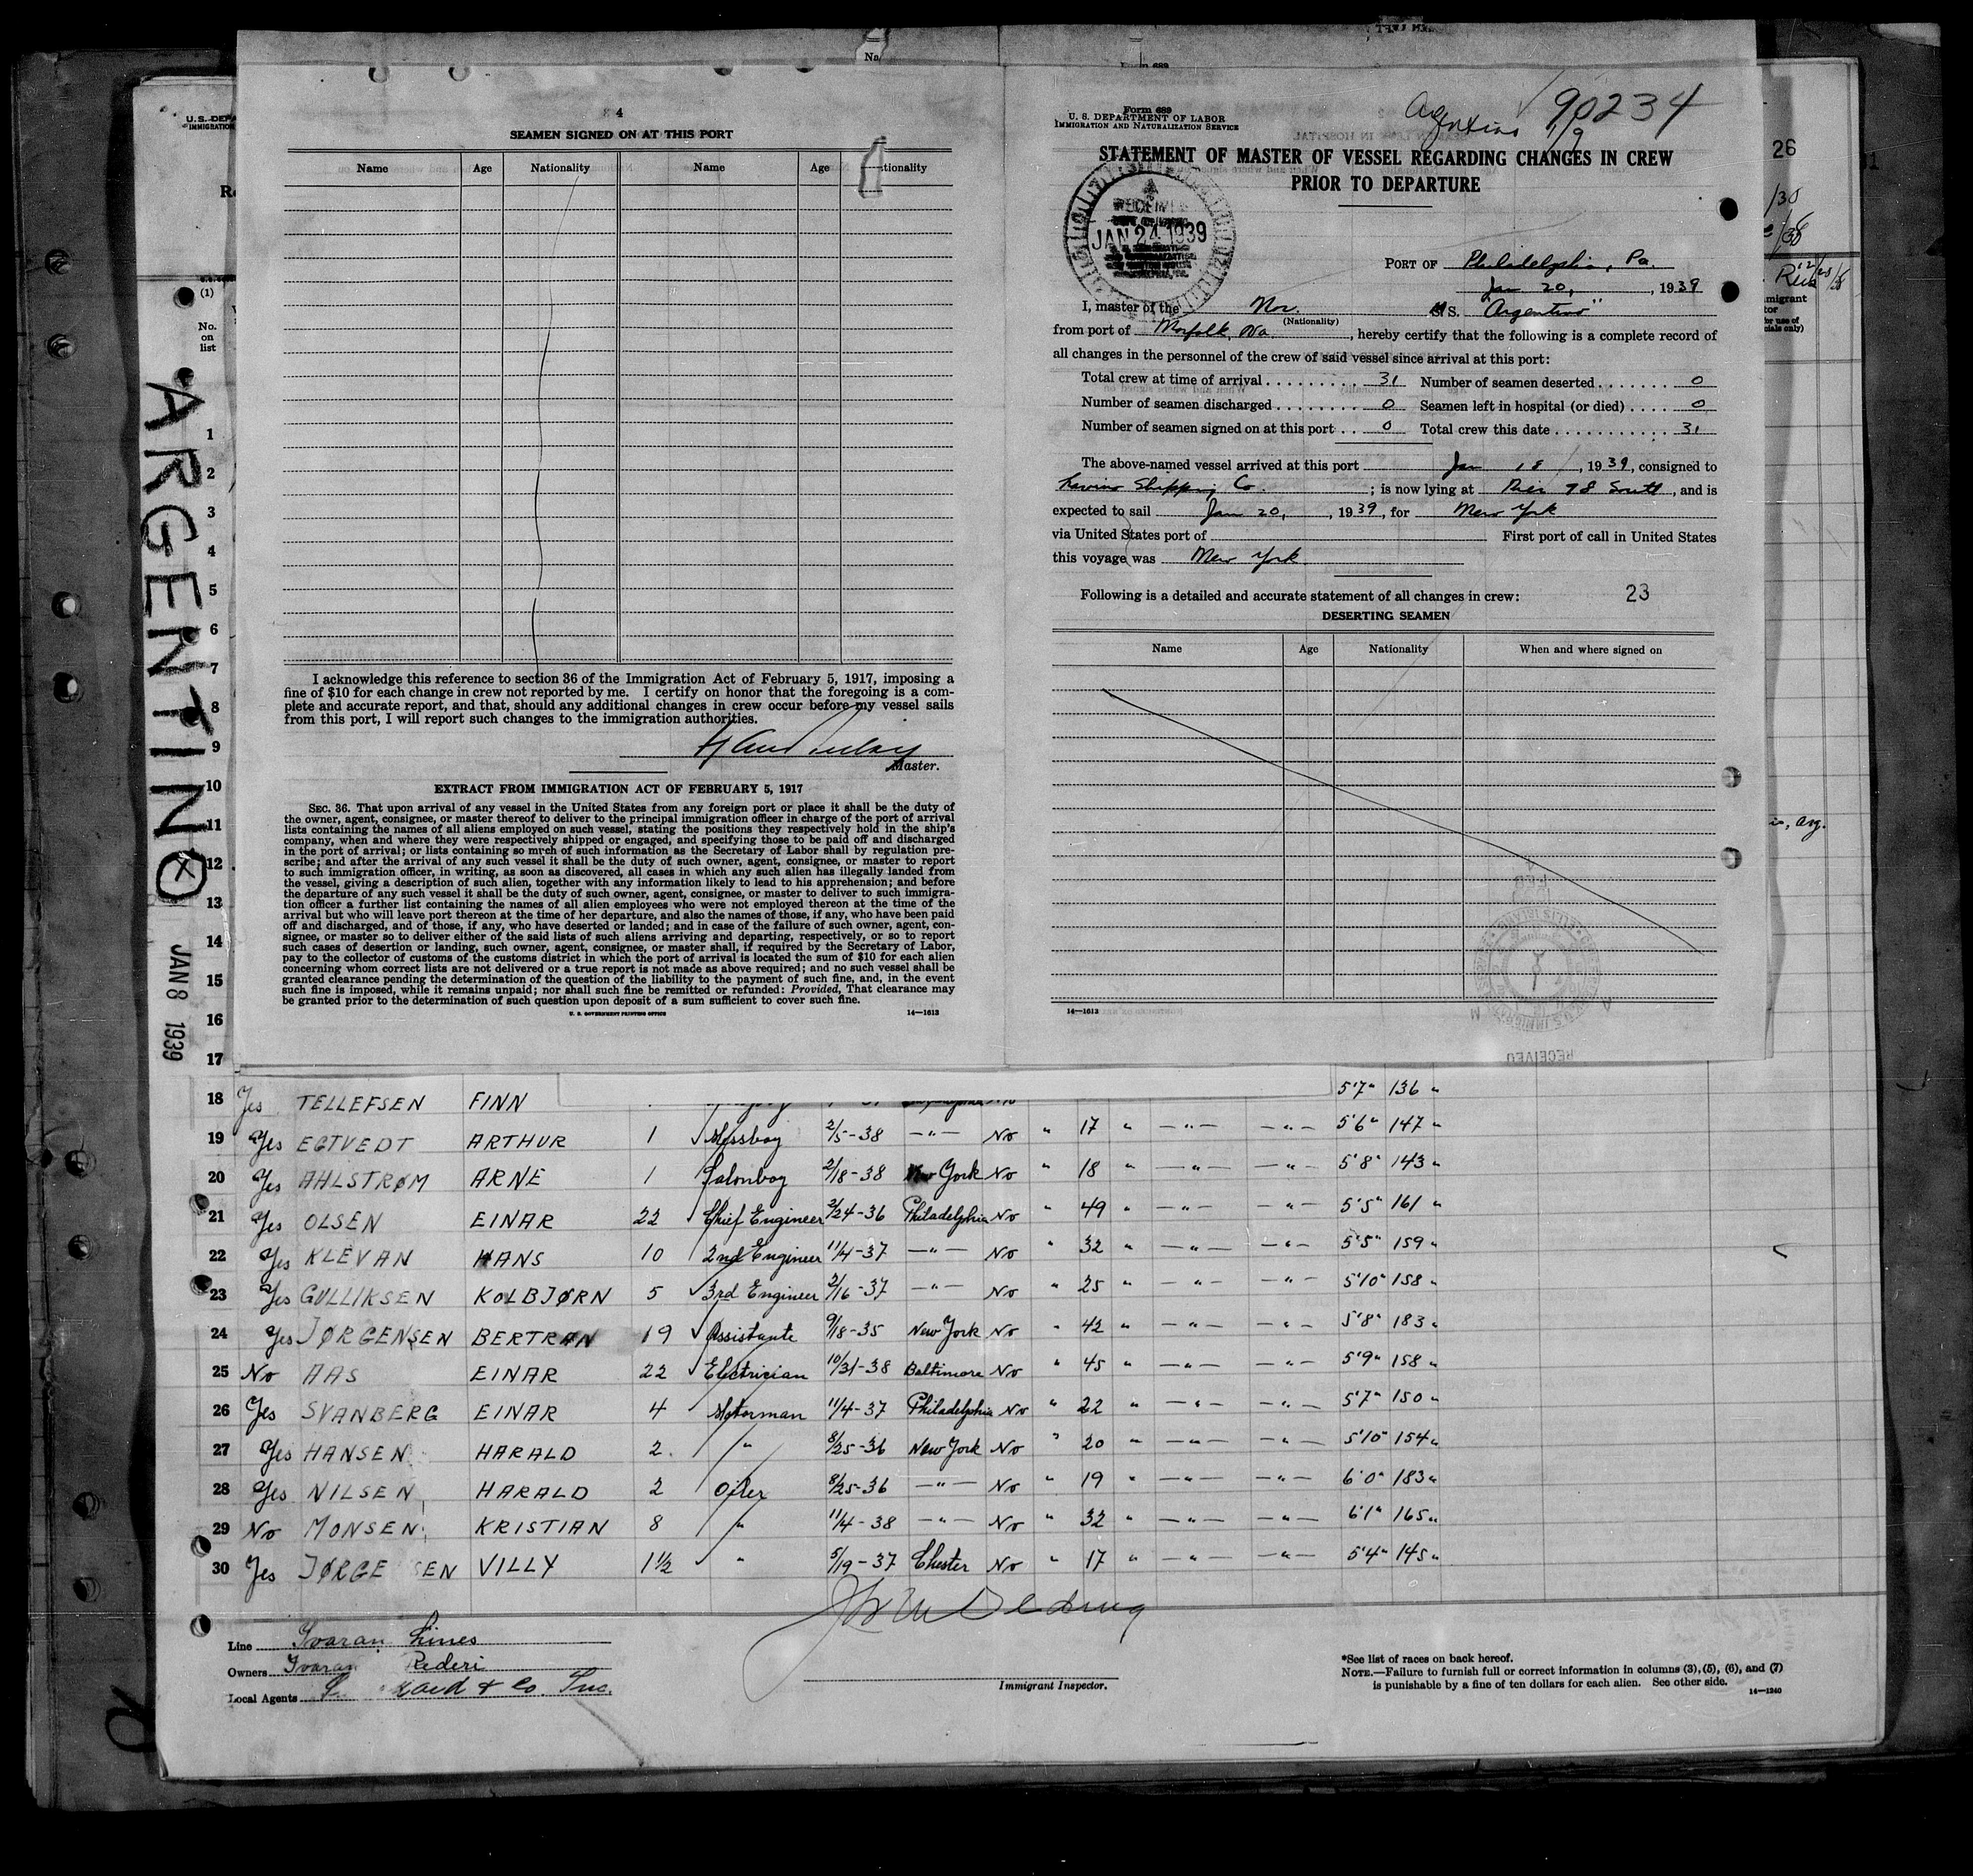 4
SEAMEN SIGNED ON AT THIS PORT
Name Age Nationality Name Age tionality
I acknowledge this reference to section 36 of the Immigration Act of February 5, 1917, imposing a
fine of $10 for each change in crew not reported by me. I certify on honor that the foregoing is a com-
plete and accurate report, and that, should any additional changes in crew occur before my vessel sails
from this port, I will report such changes to the immigration authorities.
Master.
EXTRACT FROM IMMIGRATION ACT OF FEBRUARY 5, 1917
SEC. 36. That upon arrival of any vessel in the United States from any foreign port or place it shall be the duty of
the owner, agent, consignee, or master thereof to deliver to the principal immigration officer in charge of the port of arrival
lists containing the names of all aliens employed on such vessel, stating the positions they respectively hold in the ship's
company, when and where they were respectively shipped or engaged, and specifying those to be paid off and discharged
in the port of arrival; or lists containing so much of such information as the Secretary of Labor shall by regulation pre-
scribe; and after the arrival of any such vessel it shall be the duty of such owner, agent, consignee, or master to report
to such immigration officer, in writing, as soon as discovered, all cases in which any such alien has illegally landed from
the vessel, giving a description of such alien, together with any information likely to lead to his apprehension; and before
the departure of any such vessel it shall be the duty of such owner, agent, consignee, or master to deliver to such immigra-
tion officer a further list containing the names of all alien employees who were not employed thereon at the time of the
arrival but who will leave port thereon at the time of her departure, and also the names of those, if any, who have been paid
off and discharged, and of those, if any, who have deserted or landed; and in case of the failure of such owner, agent, con-
signee, or master so to deliver either of the said lists of such aliens arriving and departing, respectively, or so to report
such cases of desertion or landing, such owner, agent, consignee, or master shall, if required by the Secretary of Labor,
pay to the collector of customs of the customs district in which the port of arrival is located the sum of $10 for each alien
concerning whom correct lists are not delivered or a true report is not made as above required; and no such vessel shall be
granted clearance pending the determination of the question of the liability to the payment of such fine, and, in the event
such fine is imposed, while it remains unpaid; nor shall such fine be remitted or refunded: Provided, That clearance may
be granted prior to the determination of such question upon deposit of a sum sufficient to cover such fine.
U. S. GOVERNMENT PRINTING OFFICE 14—1613
Form 689
U. S. DEPARTMENT OF LABOR
IMMIGRATION AND NATURALIZATION SERVICE
Argentino 1/9 90234
STATEMENT OF MASTER OF VESSEL REGARDING CHANGES IN CREW
PRIOR TO DEPARTURE
JAN 24 1939
PORT OF Philadelphia, Pa.
Jan 20, , 1939
I, master of the Nor. M S. "Argentino"
(Nationality)
from port of Norfolk, Va. , hereby certify that the following is a complete record of
all changes in the personnel of the crew of said vessel since arrival at this port:
Total crew at time of arrival 31 Number of seamen deserted 0
Number of seamen discharged 0 Seamen left in hospital (or died) 0
Number of seamen signed on at this port 0 Total crew this date 31
The above-named vessel arrived at this port Jan 18 , 1939, consigned to
Lavino Shipping Co. ; is now lying at Pier 78 South , and is
expected to sail Jan 20, , 1939, for New York
via United States port of First port of call in United States
this voyage was New York.
Following is a detailed and accurate statement of all changes in crew: 23
DESERTING SEAMEN
Name Age Nationality When and where signed on
14—1613
RECEIVED
ARGENTINO
JAN 8 1939
26
(1)
No.
on
list
1
2
3
4
5
6
7
8
9
10
11
12
13
14
15
16
17
18 Yes TELLEFSEN FINN 5'7" 136 "
19 Yes EGTVEDT ARTHUR 1 Messboy 2/5-38 —"— No " 17 " —"— —"— 5'6" 147 "
20 Yes AHLSTRØM ARNE 1 Salonboy 2/18-38 New York No " 18 " —"— —"— 5'8" 143 "
21 Yes OLSEN EINAR 22 Chief Engineer 2/24-36 Philadelphia No " 49 " —"— —"— 5'5" 161 "
22 Yes KLEVAN HANS 10 2nd Engineer 11/4-37 —"— No " 32 " —"— —"— 5'5" 159 "
23 Yes GULLIKSEN KOLBJØRN 5 3rd Engineer 2/16-37 —"— No " 25 " —"— —"— 5'10" 158 "
24 Yes JØRGENSEN BERTRAN 19 Assistante 9/18-35 New York No " 42 " —"— —"— 5'8" 183 "
25 No AAS EINAR 22 Electrician 10/31-38 Baltimore No " 45 " —"— —"— 5'9" 158 "
26 Yes SVANBERG EINAR 4 Motorman 11/4-37 Philadelphia No " 22 " —"— —"— 5'7" 150 "
27 Yes HANSEN HARALD 2 " 8/25-36 New York No " 20 " —"— —"— 5'10" 154 "
28 Yes NILSEN HARALD 2 Oiler 8/25-36 —"— No " 19 " —"— —"— 6'0" 183 "
29 No MONSEN KRISTIAN 8 " 11/4-38 —"— No " 32 " —"— —"— 6'1" 165 "
30 Yes JØRGE SEN VILLY 1½ " 5/19-37 Chester No " 17 " —"— —"— 5'4" 145 "
Line Ivaran Lines
Owners Ivaran Rederi
Local Agents & Co. Inc.
Immigrant Inspector.
*See list of races on back hereof.
NOTE.—Failure to furnish full or correct information in columns (3), (5), (6), and (7)
is punishable by a fine of ten dollars for each alien. See other side.
14—1240